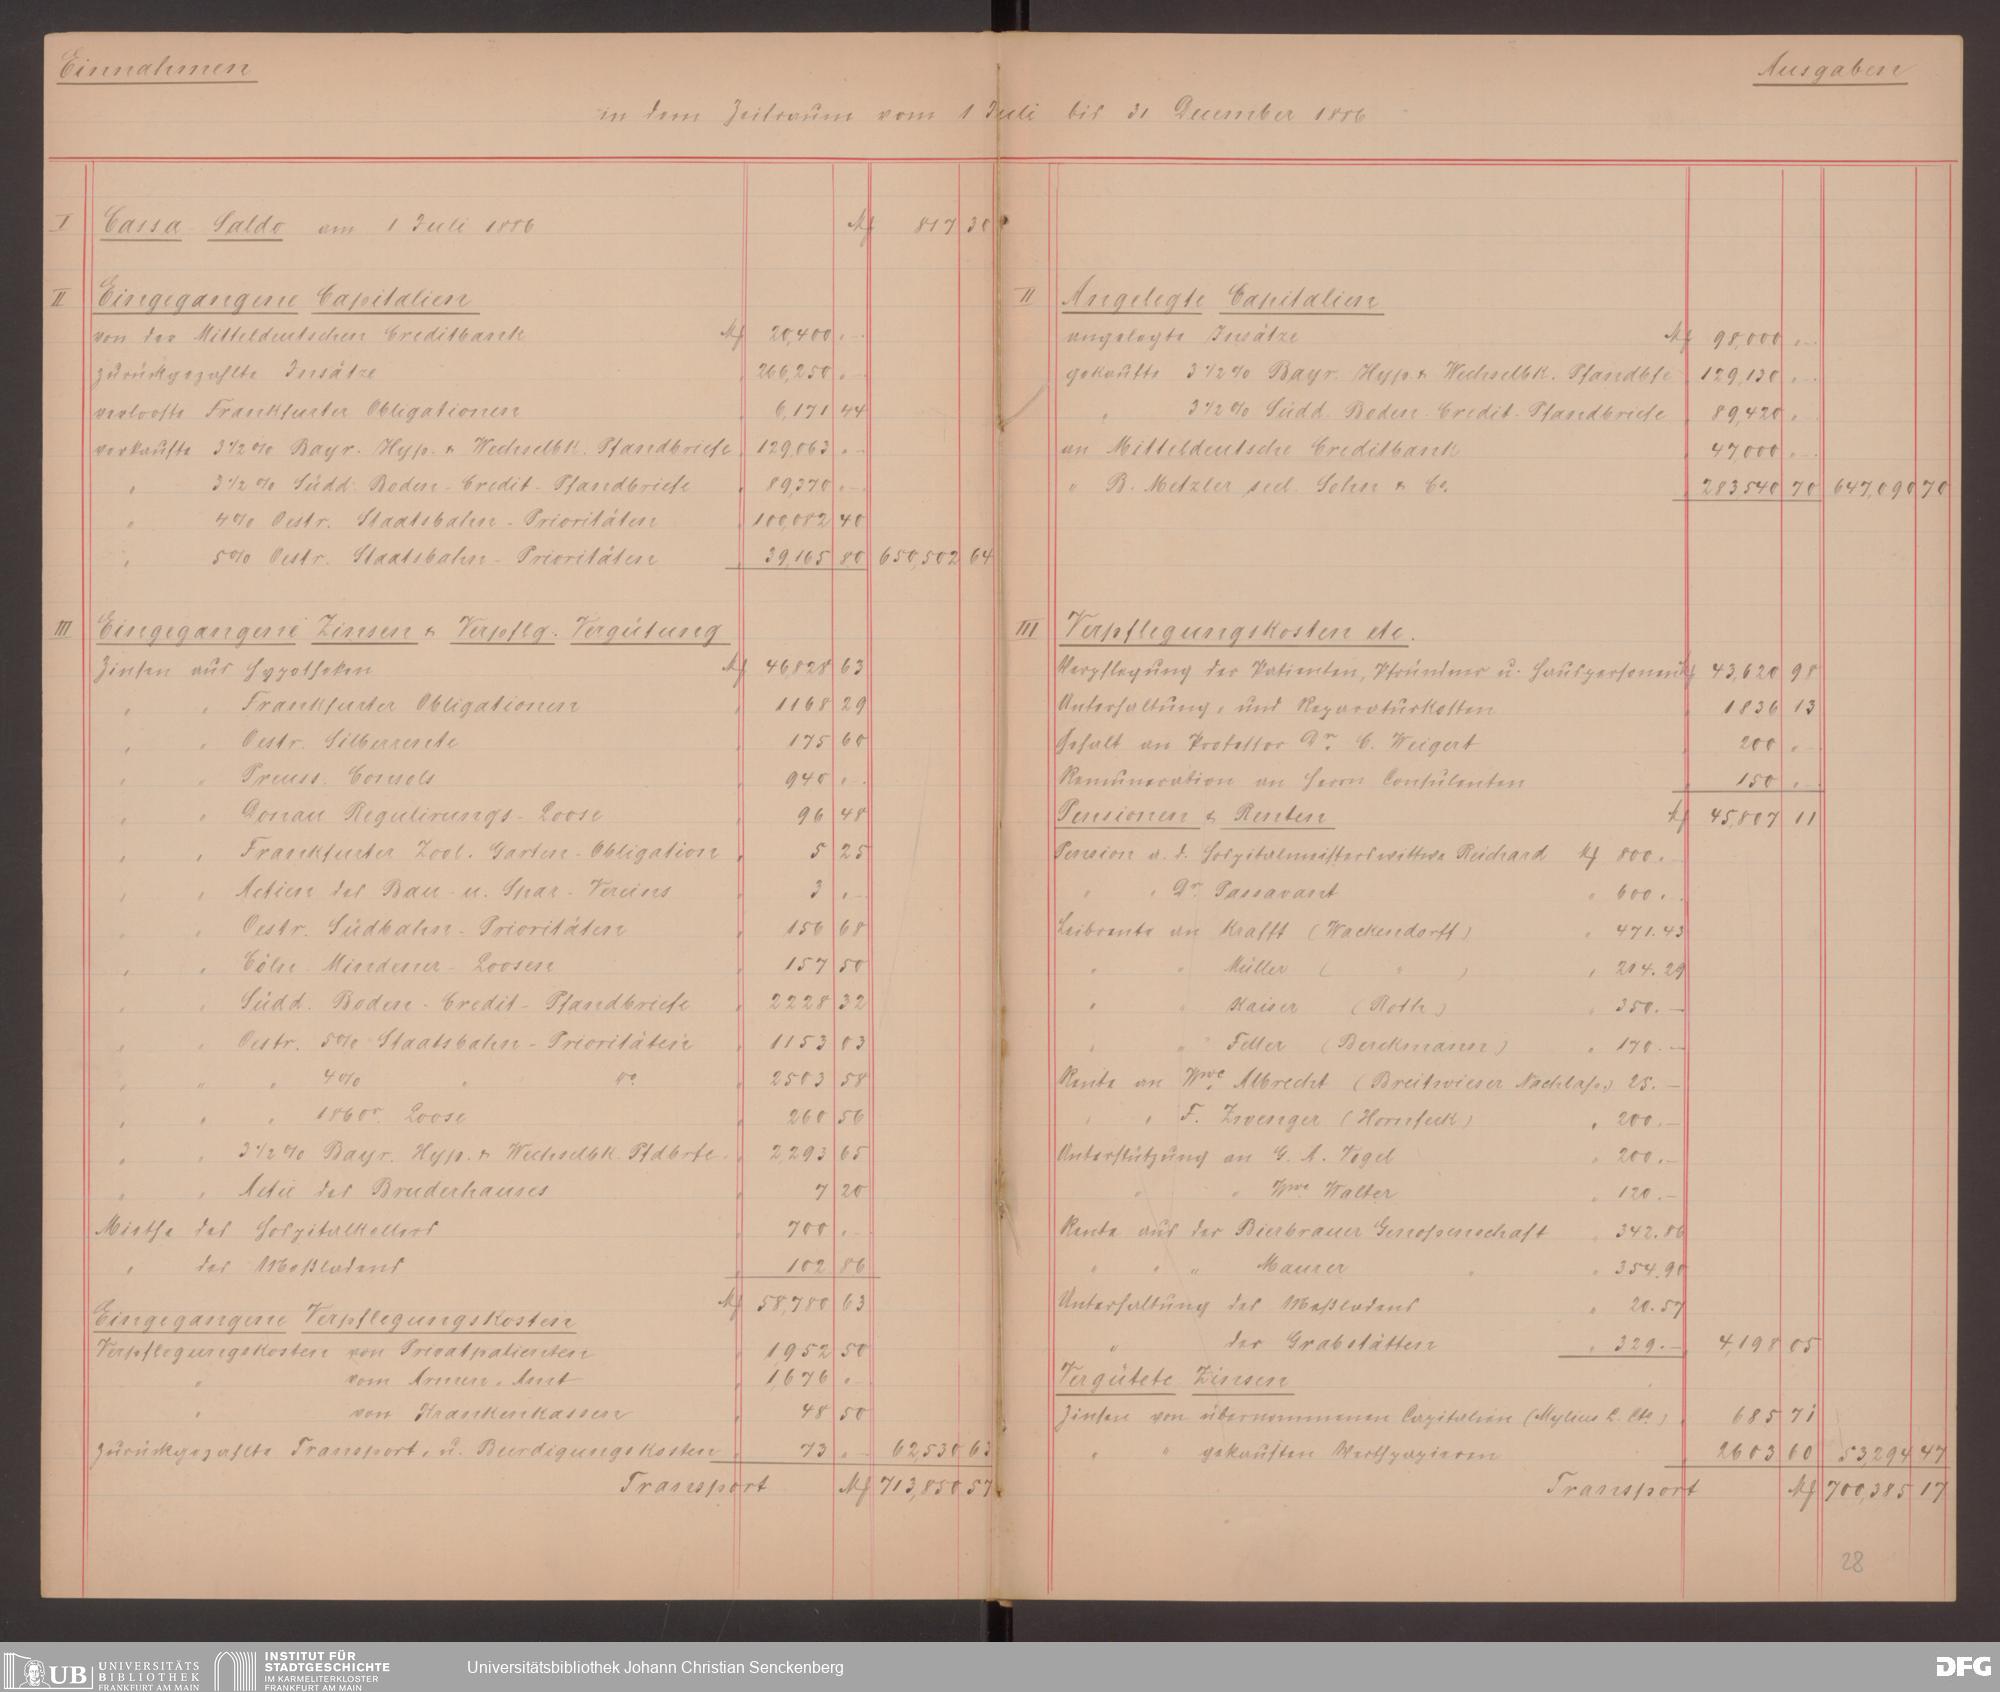 Einnahmen
Ausgaben
in dem Zeitraum vom 1 Juli bis 31 December 1886
I Cassa Saldo am 1 Juli 1886 M 817 30
II Eingegangene Capitalien
von der Mitteldeutschen Creditbank M 20,400 . –
zurückgezahlte Insätze " 266,250 . –
verlooste Frankfurter Obligationen " 6,171 44
verkaufte 3 1/2 % Bayr. Hyp. & Wechselbk. Pfandbriefe " 129,063 . –
" 3 1/2 % Südd. Boden-Credit-Pfandbriefe " 89,370 . –
" 4% Oestr. Staatsbahn-Prioritäten " 100,082 40
" 5% Oestr. Staatsbahn-Prioritäten " 39,165 80 650,502 64
III Eingegangene Zinsen & Verpflg. Vergütung
Zinsen aus Hypotheken M 46,828 63
" " Frankfurter Obligationen " 1168 29
" " Oestr. Silberrente " 175 60
" " Preuss. Consols " 940 . –
" " Donau Regulirungs-Loose " 96 48
" " Frankfurter Zool. Garten-Obligation " 5 25
" " Actien des Bau- u. Spar-Vereins " 3 . –
" " Oestr. Südbahn-Prioritäten " 156 68
" " Cöln Mindener-Loosen " 157 50
" " Südd. Boden-Credit-Pfandbriefe " 2228 32
" " Oestr. 5% Staatsbahn-Prioritäten " 1153 03
" " " 4% " do " 2503 58
" " " 1860r Loose " 260 56
" " 3 1/2 % Bayr. Hyp. & Wechselbk. Pfdbrfe " 2,293 65
" " Actie des Bruderhauses " 7 20
Miethe des Hospitalkellers " 700 . –
" des Meßladens " 102 86
M 58,780 63
Eingegangene Verpflegungskosten
Verpflegungskosten von Privatpatienten " 1,952 50
" vom Armen-Amt " 1,676 . –
" von Krankenkassen " 48 50
zurückgezahlte Transport- u. Beerdigungskosten " 73 . – 62,530 63
Transport M 713,850 57
II Angelegte Capitalien
angelegte Insätze M 98,000 . –
gekaufte 3 1/2 % Bayr. Hyp. & Wechselbk. Pfandbfe " 129,130 . –
" 3 1/2 % Südd. Boden-Credit-Pfandbriefe " 89,420 . –
an Mitteldeutsche Creditbank " 47,000 . –
" B. Metzler seel. Sohn & Co. " 283,540 70 647,090 70
III Verpflegungskosten etc.
Verpflegung der Patienten, Pfründner u. Hauspersonen M 43,620 98
Unterhaltung- und Reparaturkosten " 1836 13
Gehalt an Professor Dr. C. Weigert " 200 . –
Remuneration an Herrn Consulenten " 150 . –
Pensionen & Renten M 45,807 11
Pension a. d. Hospitalmeisterswittwe Reichard M 800. –
" " Dr. Passavant " 600. –
Leibrente an Krafft (Wackendorff) " 471.43
" " Müller ( " ) " 214.29
" " Kaiser (Roth) " 350. –
" " Feller (Berckmann) " 170. –
Rente an Wwe Albrecht (Breitwieser Nachlaß) 25. –
" " F. Zwenger (Hornfeck) " 200. –
Unterstützung an G. A. Vogel " 200. –
" " Wwe Walter " 120. –
Rente aus der Bierbrauer Genossenschaft " 342.86
" " " Maurer " " 354.90
Unterhaltung des Meßladens " 20.57
" der Grabstätten " 329. – " 4,198 05
Vergütete Zinsen
Zinsen von übernommenen Capitalien (Mylius &. Cte) " 685 71
" " gekauften Werthpapieren " 2603 60 53,294 47
Transport M 700,385 17
28
UB UNIVERSITÄTS BIBLIOTHEK FRANKFURT AM MAIN
INSTITUT FÜR STADTGESCHICHTE IM KARMELITERKLOSTER FRANKFURT AM MAIN
Universitätsbibliothek Johann Christian Senckenberg
DFG